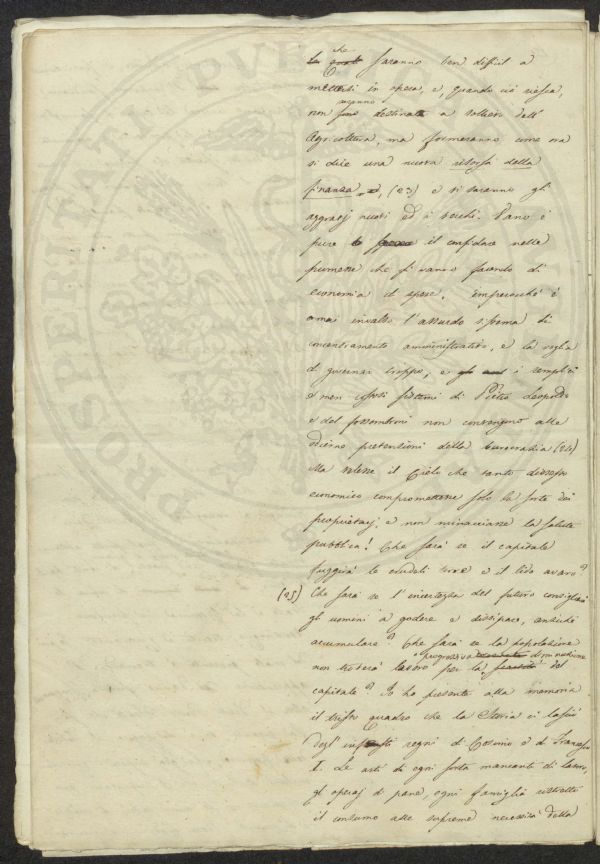 che
saranno ben difficil a
mettersi in opera, e, quando ciò riesca,
saranno
non destinate a sollievo dell'
Agricoltura, ma formeranno come ora
si dice una nuova risorsa della
finanza, (23) e si saranno gli
aggravj nuovi ed i vecchi. Vano è
pure il confidare nelle
promesse che si vanno facendo di
economia di spese, imperocchè è
omai invalso l'assurdo sistema di
concentramento amministrativo, e la voglia
di governar troppo, e i semplici
e men costosi sistemi di Pietro Leopoldo
e del Fossombroni non convengono alle
odierne pretensioni della burocrazia (24)
Ma volesse il Cielo che tanto dissesto
economico compromettesse solo la sorte dei
proprietarj, e non minacciasse la salute
pubblica! Che sarà se il capitale
fuggirà le crudeli terre e il lido avaro?
(25) Che sarà se l'incertezza del futuro consiglierà
gli uomini a godere e dissipare, anzichè
accumulare? Che sarà se la popolazione
progressiva diminuzione
non troverà lavoro per la del
capitale? Io ho presente alla memoria
il tristo quadro che la Storia ci lasciò
degl'infausti regni di Cosimo e di Francesco
I. Le arti di ogni sorta mancanti di lavoro,
gli operaj di pane, ogni famiglia ristretto
il consumo alle supreme necessità della